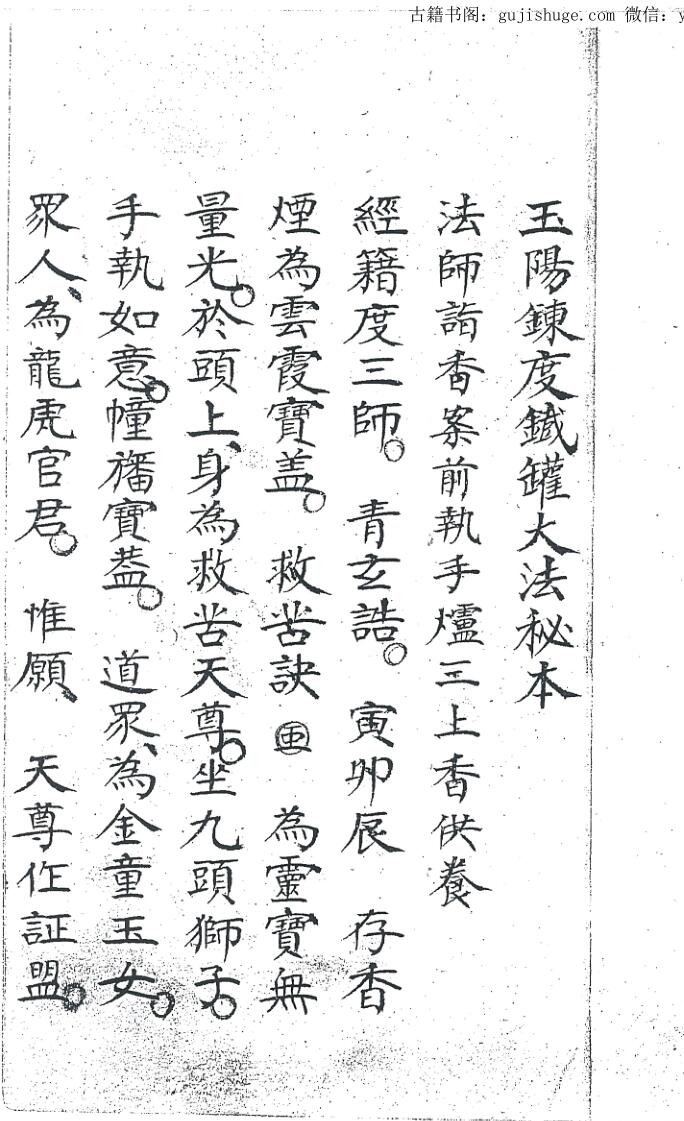 古籍书阁：gujishuge.com 微信：y
玉陽鍊度鐵罐大法秘本
法師詣香案前執手爐三上香供養
經籍度三師。青玄誥。寅卯辰 存香
煙為雲霞寶盖。救苦訣 為靈寶無
量光。於頭上、身為救苦天尊。坐九頭獅子。
手執如意。幢旛寶葢。道眾、為金童玉女。
眾人、為龍虎官君。惟願、天尊作証盟。